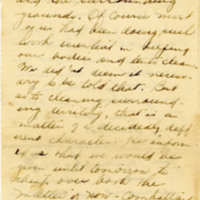 and the surrounding
grounds. Of course most
of us had been doing such
work essential in keeping
our bodies and tents clean.
We did not deem it neces-
sary to be told that. But
as to cleaning surround-
ing territory, that is a
matter of a decidedly diff-
erent character. He inform-
ed us that we would be
given until tomorrow to
think over both the
matter of non-combattant